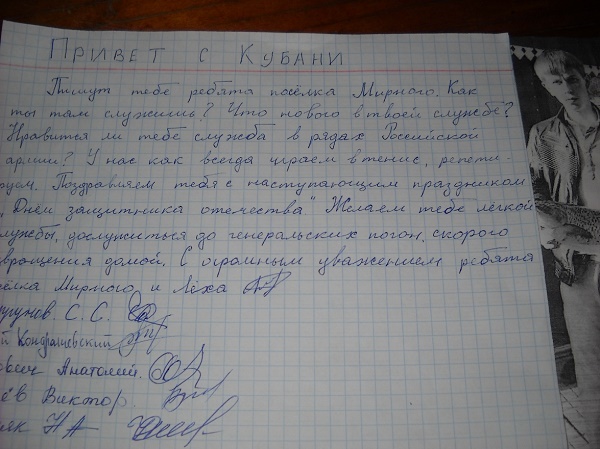 Привет с Кубани
Пишут тебе ребята посёлка Мирного. Как
ты там служишь? Что нового в твоей службе?
Нравится ли тебе служба в рядах Российской
армии? У нас как всегда играем в тенис, репети-
руем. Поздравляем тебя с наступающим праздником
„Днём защитника отечества" Желаем тебе лёгкой
службы, дослужиться до генеральских погон, скорого
вращения домой. С огромным уважением ребята
сёлка Мирного и Лёха
С. С.
й Кондрашевский
Анатолий.
ёв Виктор.
як Н А